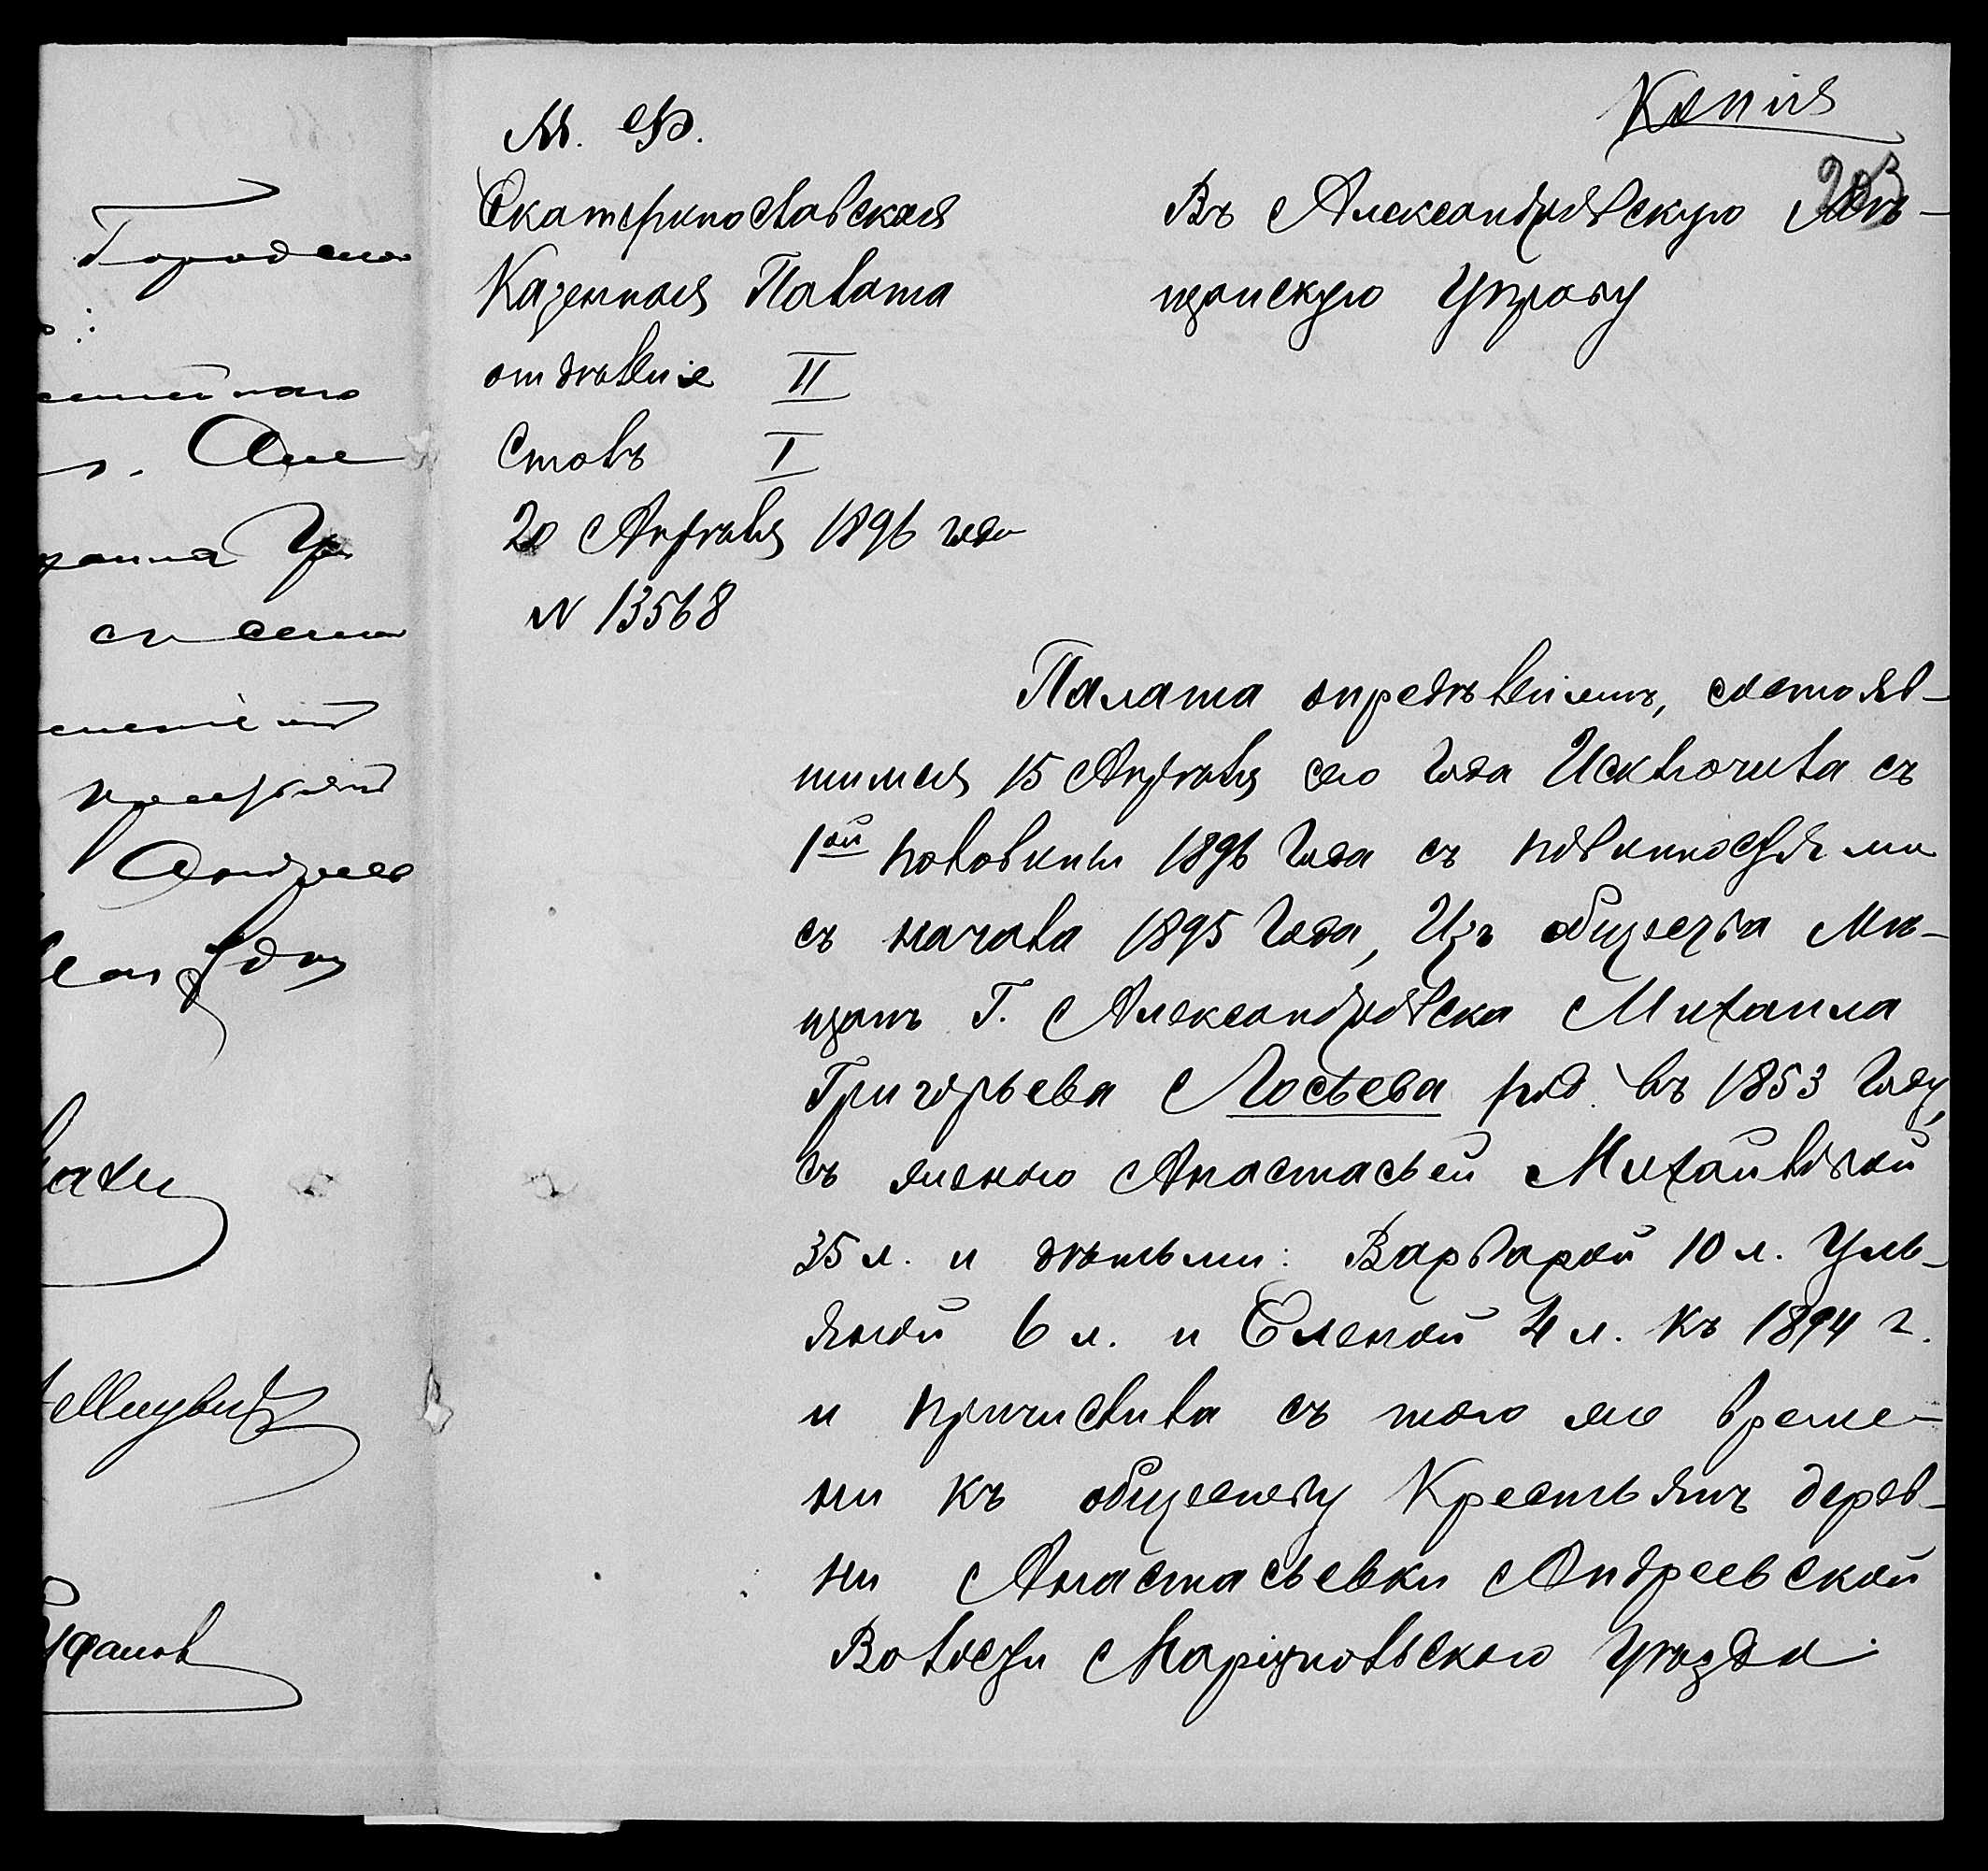 Копія
203
М. Ф.
Екатеринославская
Казенная Палата
отдѣленіе II
Столъ I
20 Апрѣля 1896 года
N 13568
Въ Александровскую Мѣ-
щанскую Управу
Палата опредѣленіемъ, состояв-
шимся 15 Апрѣля сего года Исключила съ
1ой половины 1896 года съ повинностями
съ начала 1895 года, Изъ общества Мѣ-
щанъ Г. Александровска Михаила
Григорьева Лосьева род. въ 1853 году,
съ женою Анастасьей Михайловной
35 л. и дѣтьми: Варварой 10 л. Уль-
яной 6 л. и Еленой 4 л. къ 1894 г.
и причислила съ того же време-
ни къ обществу Крестьянъ дерев-
ни Анастасьевки Андреевской
Волости Маріупольскаго Уѣзда.